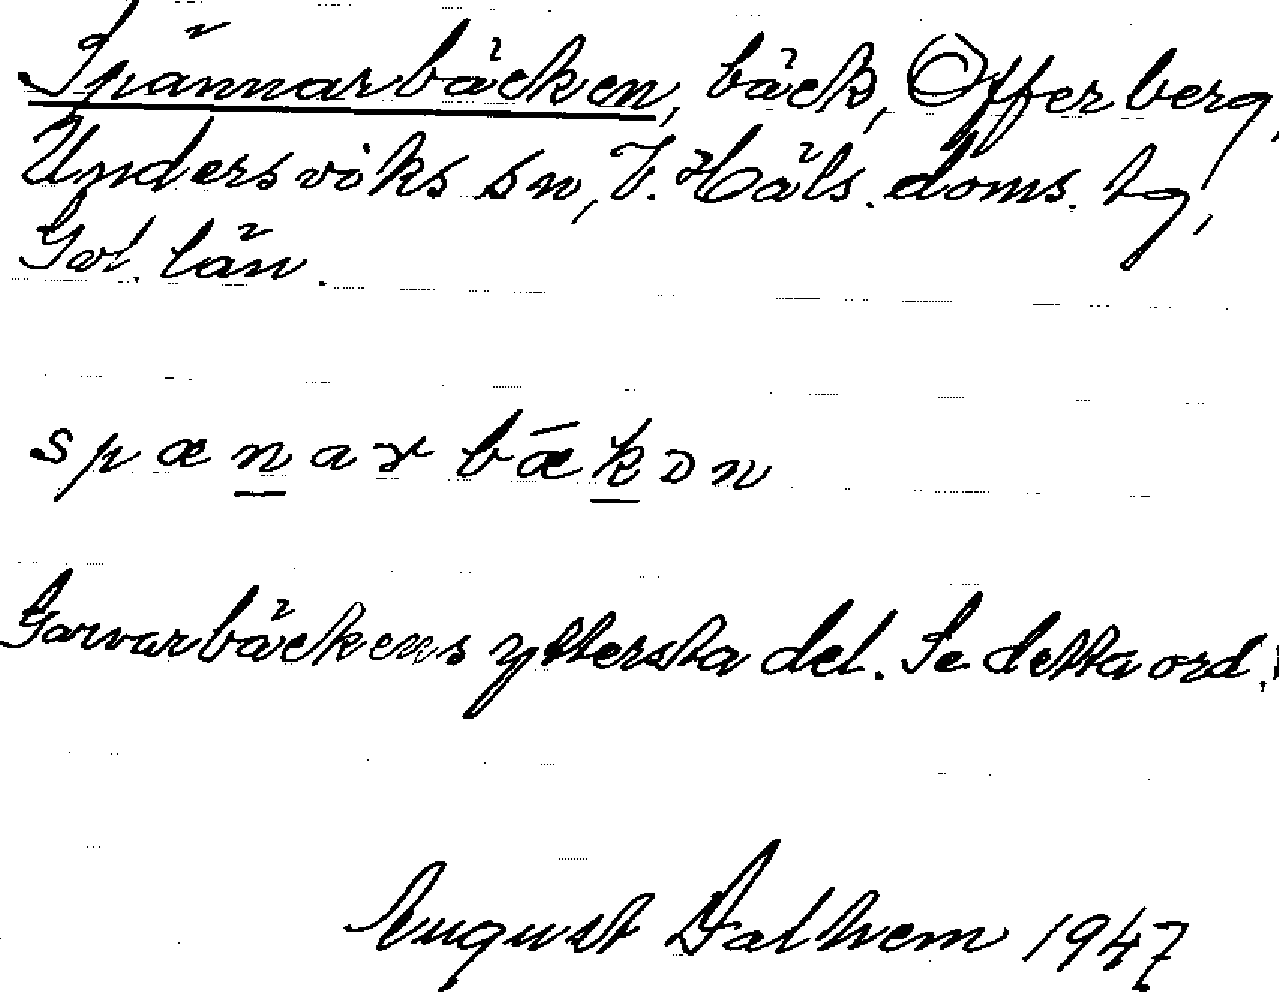 Spännarbäcken, bäck, Offerberg,
Undersviks sn, V. Häls. doms. hg,
Gvl. län.
spænarbækən
Garvarbäckens yttersta del. Se detta ord.
August Dalhem 1947